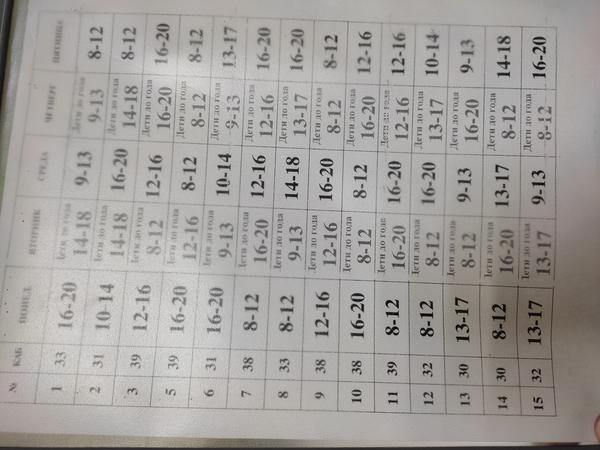 № КАБ ПОНЕД. ВТОРНИК СРЕДА ЧЕТВЕРГ ПЯТНИЦА
Дети до года Дети до года
1 33 16-20 14-18 9-13 9-13 8-12
Дети до года Дети до года
2 31 10-14 14-18 16-20 14-18 8-12
Дети до года Дети до года
3 39 12-16 8-12 12-16 16-20 16-20
Дети до года Дети до года
5 39 16-20 12-16 8-12 8-12 8-12
Дети до года Дети до года
6 31 16-20 9-13 10-14 9-13 13-17
Дети до года Дети до года
7 38 8-12 16-20 12-16 12-16 16-20
Дети до года Дети до года
8 33 8-12 9-13 14-18 13-17 16-20
Дети до года Дети до года
9 38 12-16 12-16 16-20 8-12 8-12
Дети до года Дети до года
10 38 16-20 8-12 8-12 16-20 12-16
Дети до года Дети до года
11 39 8-12 16-20 16-20 12-16 12-16
Дети до года Дети до года
12 32 8-12 8-12 16-20 13-17 10-14
Дети до года Дети до года
13 30 13-17 8-12 9-13 16-20 9-13
Дети до года Дети до года
14 30 8-12 16-20 13-17 8-12 14-18
Дети до года Дети до года
15 32 13-17 13-17 9-13 8-12 16-20